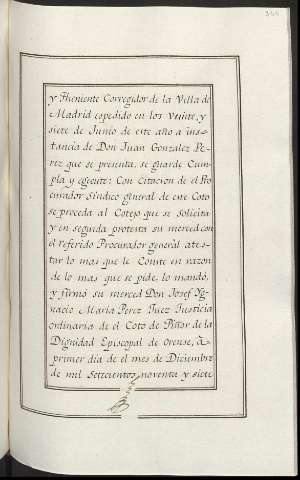 y Theniente Corregidor de la Villa de
Madrid espedido en los veinte, y
siete de Junio de este año a ins-
tancia de Don Juan Gonzalez Pe-
rez que se presenta, se guarde Cum-
pla y egecute: Con Citacion de el Pro
curador Sindico general de este Coto
se proceda al Cotejo que se solicita
y en seguida protexta su merced con
el referido Procurador general ates-
tar lo mas que le Conste en razon
de lo mas que se pide, lo mandó,
y firmó su merced Don Josef Yg-
nacio Maria Perez Juez Justicia
ordinaria de el Coto de Piñor de la
Dignidad Episcopal de Orense, à
primer dia de el mes de Diciembre
de mil Setecientos noventa y siete